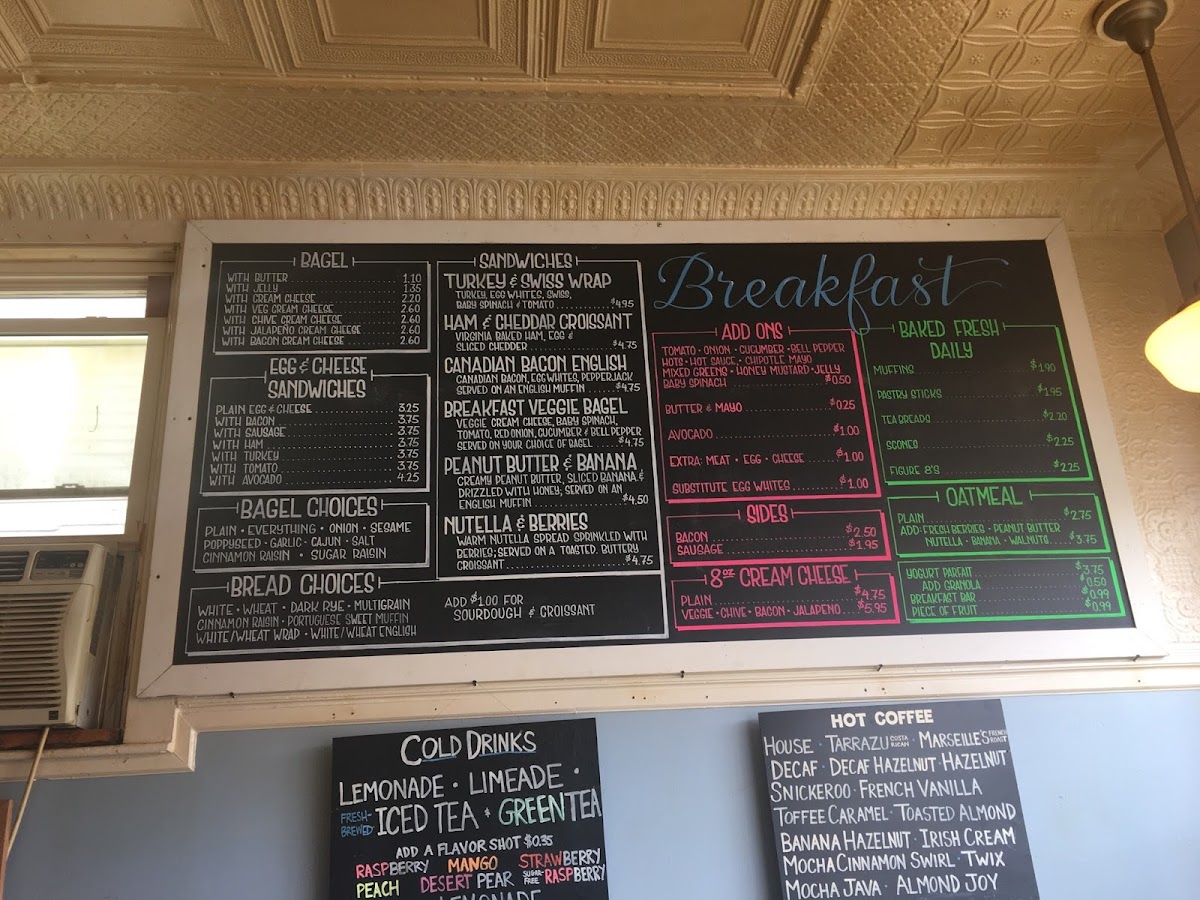 BAGEL
WITH BUTTER 1.10
WITH JELLY 1.35
WITH CREAM CHEESE 2.20
WITH VEG CREAM CHEESE 2.60
WITH CHIVE CREAM CHEESE 2.60
WITH JALAPEÑO CREAM CHEESE 2.60
WITH BACON CREAM CHEESE 2.60
EGG & CHEESE
SANDWICHES
PLAIN EGG & CHEESE 3.25
WITH BACON 3.75
WITH SAUSAGE 3.75
WITH HAM 3.75
WITH TURKEY 3.75
WITH TOMATO 3.75
WITH AVOCADO 4.25
BAGEL CHOICES
PLAIN • EVERYTHING • ONION • SESAME
POPPYSEED • GARLIC • CAJUN • SALT
CINNAMON RAISIN • SUGAR RAISIN
BREAD CHOICES
WHITE • WHEAT • DARK RYE • MULTIGRAIN
CINNAMON RAISIN • PORTUGUESE SWEET MUFFIN
WHITE/WHEAT WRAP • WHITE/WHEAT ENGLISH
ADD $1.00 FOR
SOURDOUGH & CROISSANT
SANDWICHES
TURKEY & SWISS WRAP
TURKEY, EGG WHITES, SWISS,
BABY SPINACH & TOMATO $4.95
HAM & CHEDDAR CROISSANT
VIRGINIA BAKED HAM, EGG &
SLICED CHEDDER $4.75
CANADIAN BACON ENGLISH
CANADIAN BACON, EGG WHITES, PEPPERJACK
SERVED ON AN ENGLISH MUFFIN $4.75
BREAKFAST VEGGIE BAGEL
VEGGIE CREAM CHEESE, BABY SPINACH,
TOMATO, RED ONION, CUCUMBER & BELL PEPPER
SERVED ON YOUR CHOICE OF BAGEL $4.75
PEANUT BUTTER & BANANA
CREAMY PEANUT BUTTER, SLICED BANANA &
DRIZZLED WITH HONEY; SERVED ON AN
ENGLISH MUFFIN $4.50
NUTELLA & BERRIES
WARM NUTELLA SPREAD SPRINKLED WITH
BERRIES; SERVED ON A TOASTED, BUTTERY
CROISSANT $4.75
Breakfast
ADD ONS
TOMATO • ONION • CUCUMBER • BELL PEPPER
HOTS • HOT SAUCE • CHIPOTLE MAYO
MIXED GREENS • HONEY MUSTARD • JELLY
BABY SPINACH $0.50
BUTTER & MAYO $0.25
AVOCADO $1.00
EXTRA: MEAT • EGG • CHEESE $1.00
SUBSTITUTE EGG WHITES $1.00
SIDES
BACON $2.50
SAUSAGE $1.95
8oz CREAM CHEESE
PLAIN $4.75
VEGGIE • CHIVE • BACON • JALAPENO $5.95
BAKED FRESH
DAILY
MUFFINS $1.90
PASTRY STICKS $1.95
TEA BREADS $2.20
SCONES $2.25
FIGURE 8'S $2.25
OATMEAL
PLAIN $2.75
ADD: FRESH BERRIES • PEANUT BUTTER
NUTELLA • BANANA • WALNUTS $3.75
YOGURT PARFAIT $3.75
ADD GRANOLA $0.50
BREAKFAST BAR $0.99
PIECE OF FRUIT $0.99
COLD DRINKS
LEMONADE • LIMEADE •
FRESH-BREWED ICED TEA • GREEN TEA
ADD A FLAVOR SHOT $0.35
RASPBERRY MANGO STRAWBERRY
PEACH DESERT PEAR SUGAR-FREE RASPBERRY
LEMONADE
HOT COFFEE
HOUSE • TARRAZU COSTA RICAN • MARSEILLE'S FRENCH ROAST
DECAF • DECAF HAZELNUT • HAZELNUT
SNICKEROO • FRENCH VANILLA
TOFFEE CARAMEL • TOASTED ALMOND
BANANA HAZELNUT • IRISH CREAM
MOCHA CINNAMON SWIRL • TWIX
MOCHA JAVA • ALMOND JOY